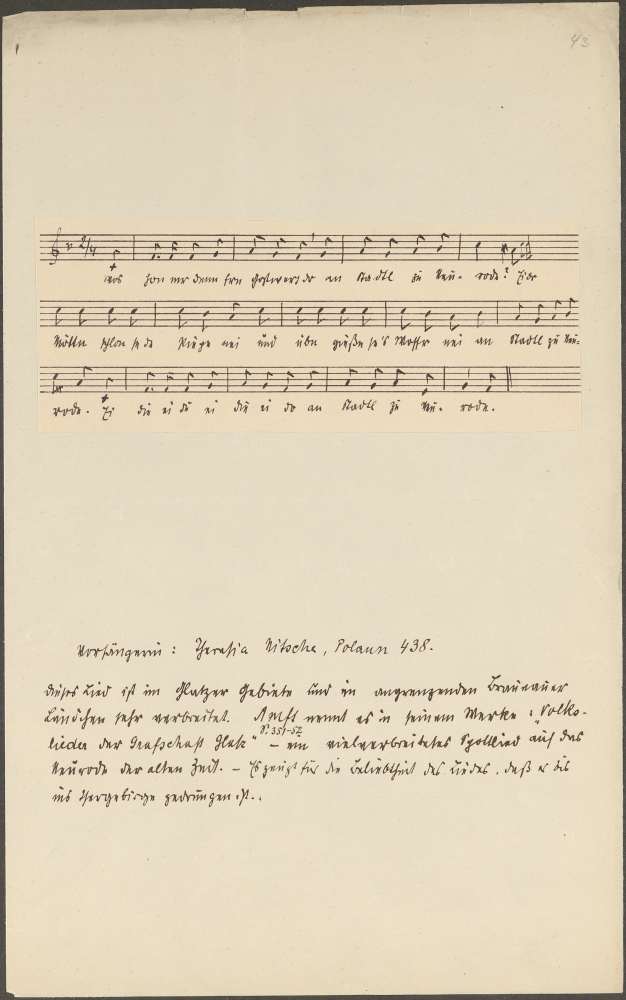 43
2/4
hon mr denn fer an Stadtl zu Neu- rode? Hier
schlon se de nei und übn gießn se's Wossr nei an Stadtl zu Neu-
rode. Ei die ei di ei die ei do an Stadtl zu Neu- rode.
Vorsängerin: Theresia Nitsche, Polaun 438.
Dieses Lied ist im Glatzer Gebiete und im angrenzenden Braunauer
Ländchen sehr verbreitet. Amft nennt es in seinem Werke: „Volks-
lieder der Grafschaft Glatz" S. 351-52 – ein vielverbreitetes Spottlied auf das
Neurode der alten Zeit. – Es zeugt für die Beliebtheit des Liedes, daß es bis
ins Isergebirge gedrungen ist.